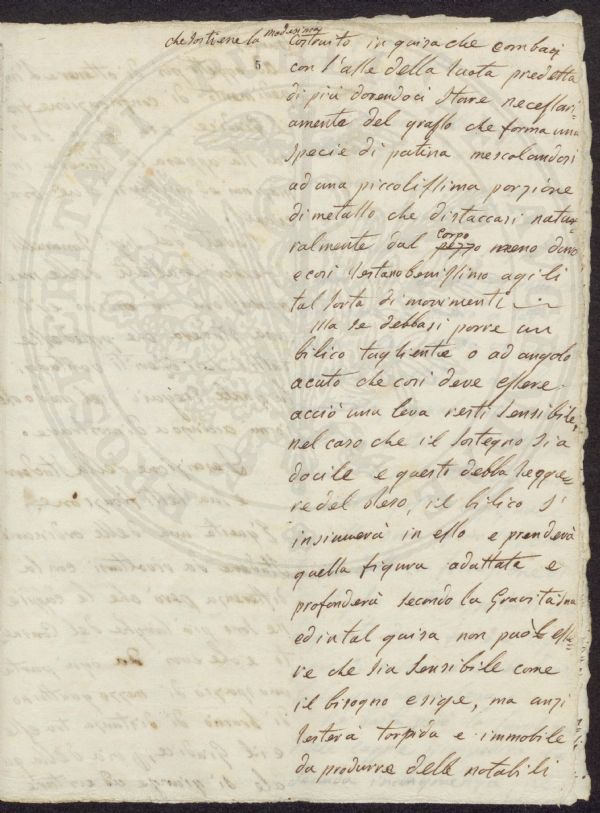 che sostiene la medesima
5
Costruito in guisa che combaci
con l'asse della Ruota predetta
di più dovendoci stare necessari=
amente del grasso che forma una
specie di patina mescolandosi
ad una piccolissima porzione
di metallo che distaccasi natu=
ralmente dal pezzo corpo meno duro
e così restano benissimo agili
tal sorta di movimenti
Ma se debbasi porre un
bilico tagliente o ad angolo
acuto che così deve essere
acciò una leva resti sensibile,
nel caso che il sostegno sia
docile e questi debba regge=
re del peso, il bilico s'
insinuerà in esso e prenderà
quella figura adattata e
profonderà secondo la Gravità sua
ed in tal guisa non può esse=
re che sia sensibile come
il bisogno esige, ma anzi
resterà torpida e immobile
da produrre delle notabili